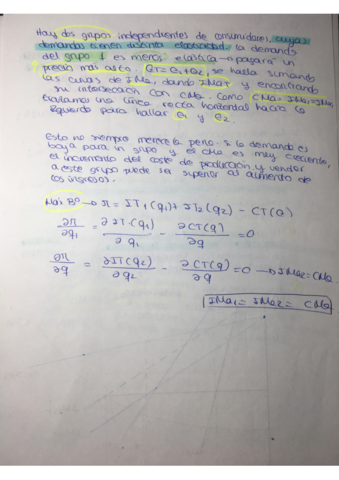 Hay dos grupos independientes de consumidores, cuyas
demandas tienen distinta elasticidad. La demanda
del grupo 1 es menos elástica → pagará un
precio más alto. QT = Q1 + Q2, se halla sumando
las curvas de IMa, dando IMaT y encontrando
su intersección con CMa. Como CMa = IMa1 = IMa2
trazamos una línea recta horizontal hacia la
izquierda para hallar Q1 y Q2.
Esto no siempre merece la pena. Si la demanda es
baja para un grupo y el CMa es muy creciente,
el incremento del coste de producción y vender
a este grupo puede ser superior al aumento de
los ingresos.
Max Bº → π = IT1(q1) + IT2(q2) - CT(Q)
∂π/∂q1 = ∂IT(q1)/∂q1 - ∂CT(q)/∂q = 0
∂π/∂q = ∂IT(q2)/∂q2 - ∂CT(q)/∂q = 0 → IMa2 = CMa
IMa1 = IMa2 = CMa